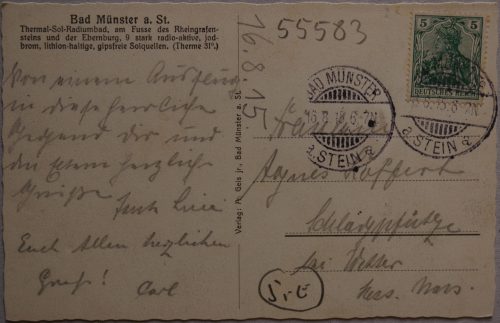 Bad Münster a. St.
Thermal-Sol-Radiumbad, am Fusse des Rheingrafen-
steins und der Ebernburg, 9 stark radio-aktive, jod-
brom, lithion-haltige, gipsfreie Solquellen. (Therme 31°.)
Von einem Ausflug
in diese herrliche
Gegend Dir und
den Eltern herzliche
Grüße
Euch Allen herzlichen
Gruß! Carl
Verlag: Ph. Gels jr., Bad Münster a. St.
55583
16.8.15
5
5
DEUTSCHES REICH
BAD MÜNSTER
a. STEIN a
a. STEIN a
Fräulein
Agnes
bei Wetter
Hess. Nass.